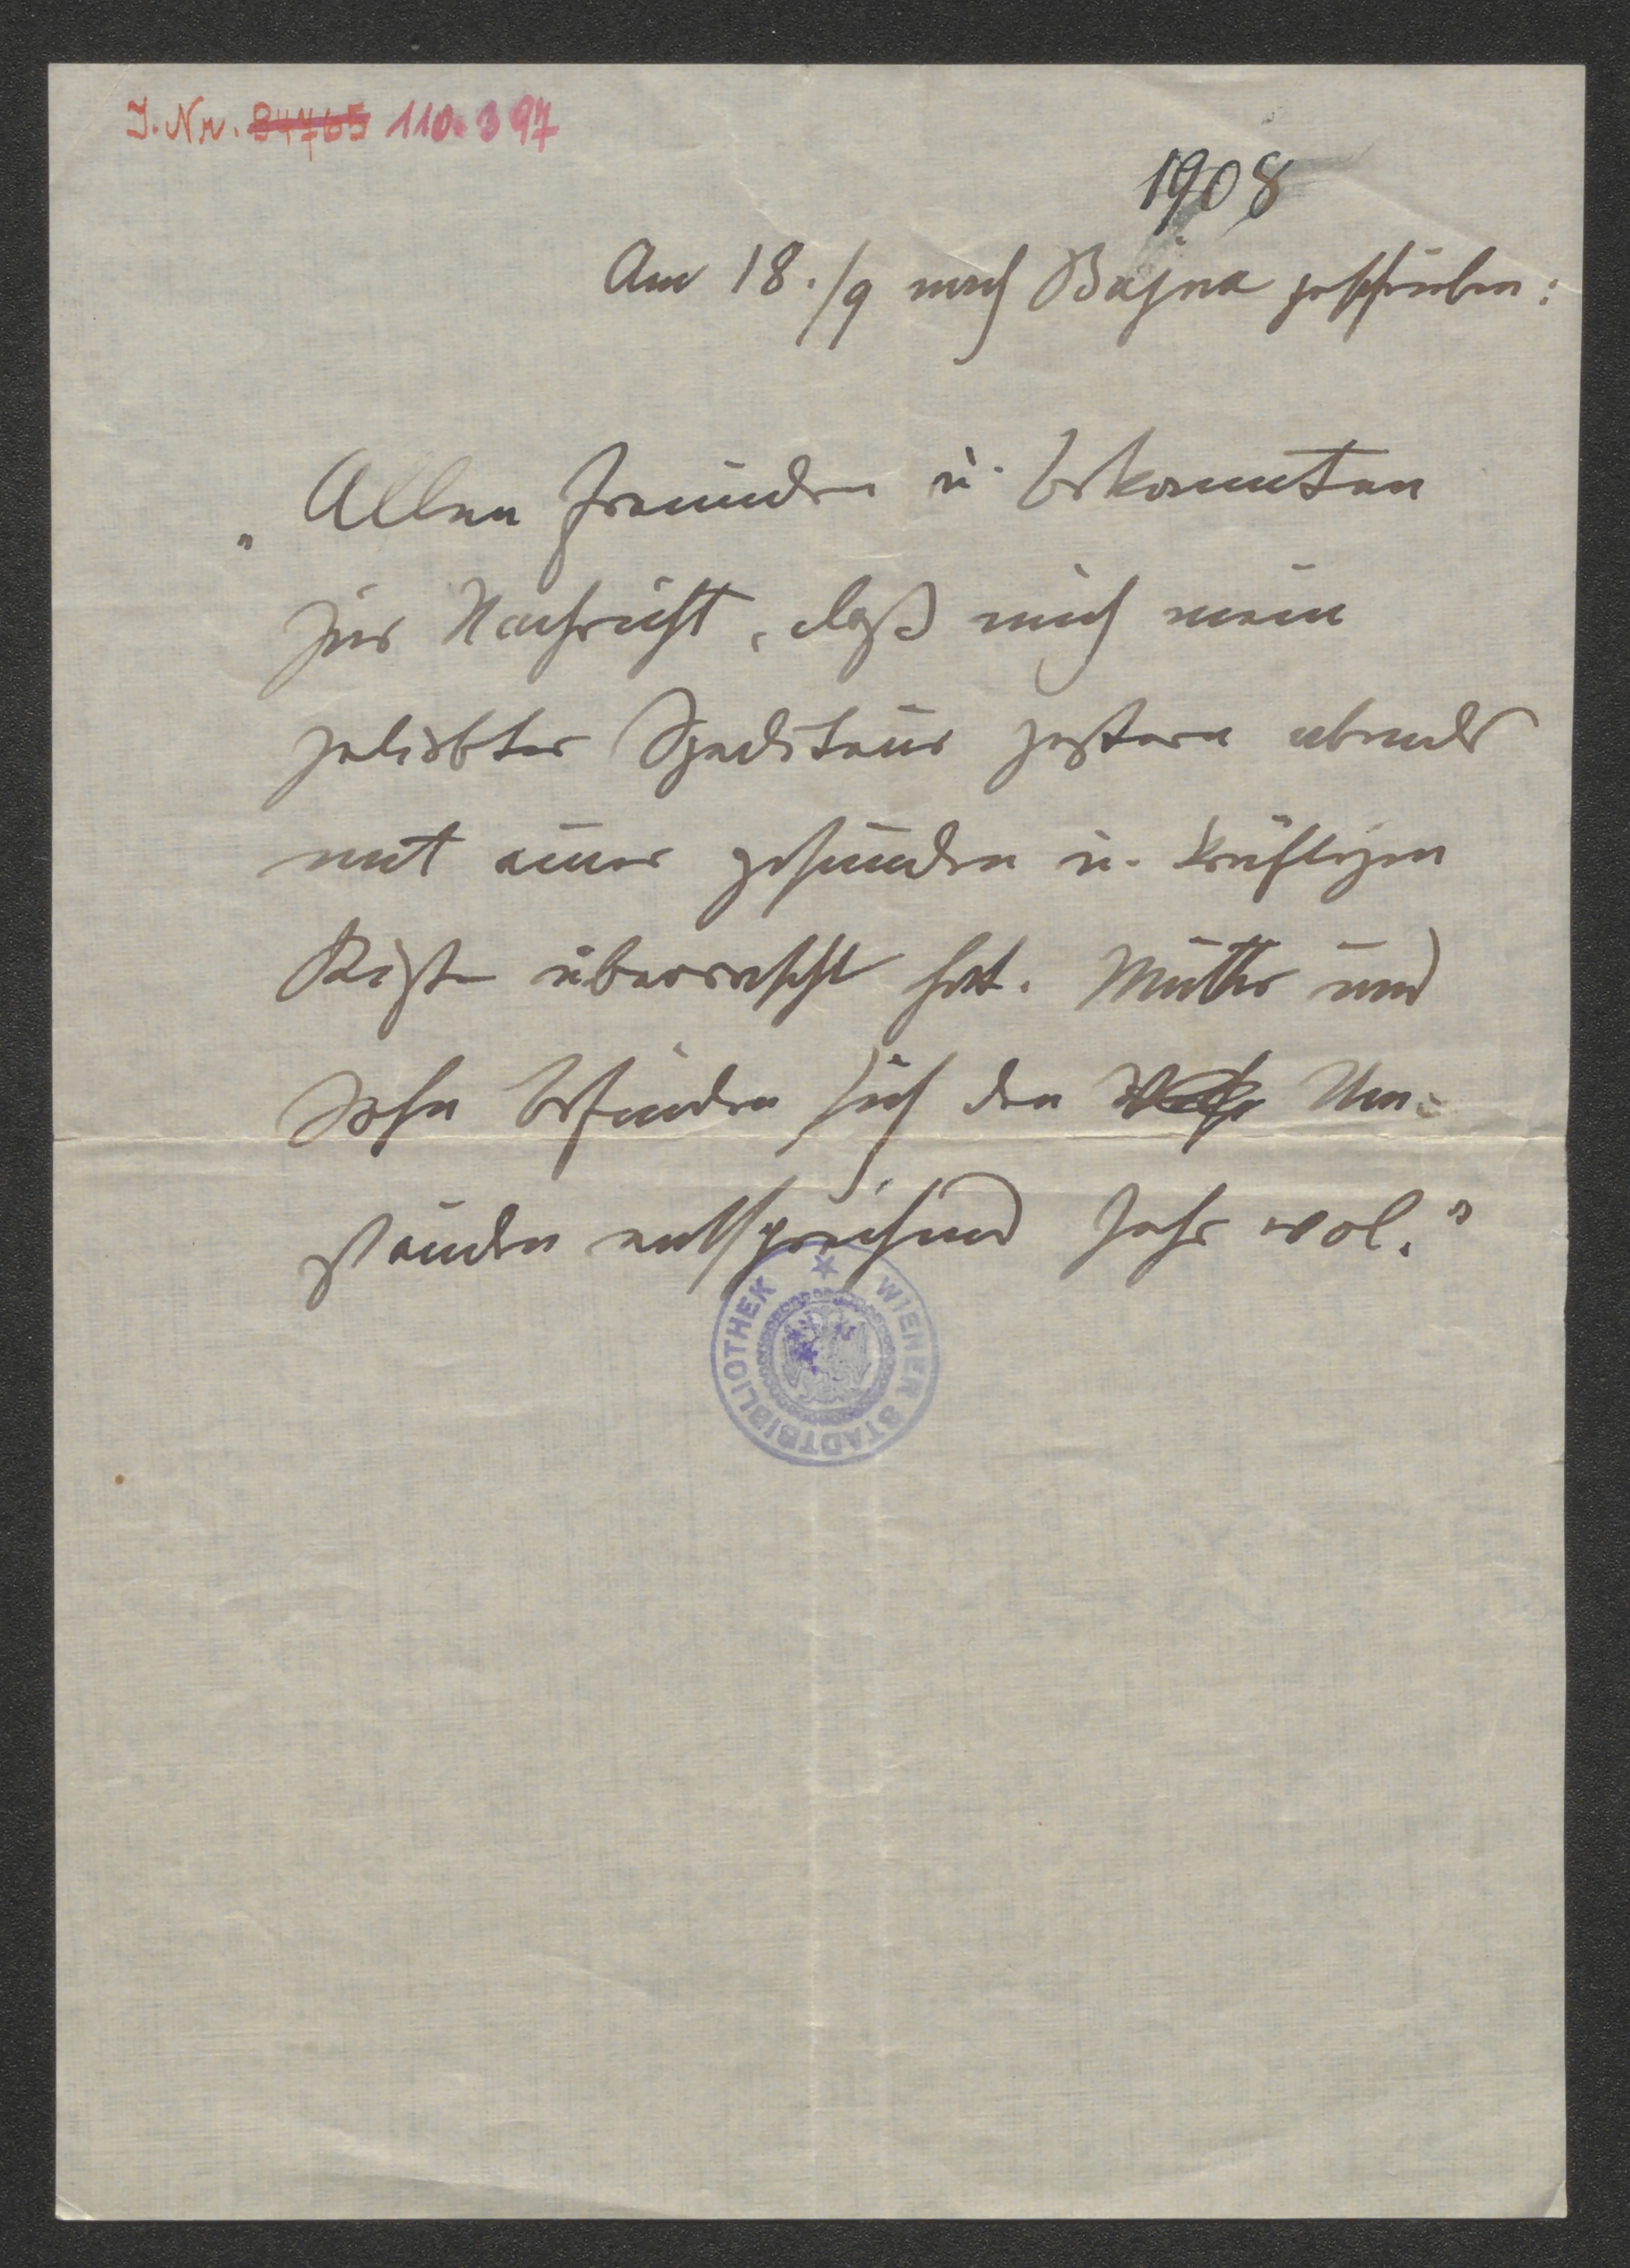 I. Nr. 84765 110.397
1908
Am 18./9 nach Bajna geschrieben:
„Allen Freunden u. Bekannten
zur Nachricht, daß mich mein
geliebter Spediteur gestern abends
mit einer gesunden u. kräftigen
Kiste überrascht hat. Mutter und
Sohn befinden sich den Um-
ständen entsprechend sehr wol.“
WIENER STADTBIBLIOTHEK